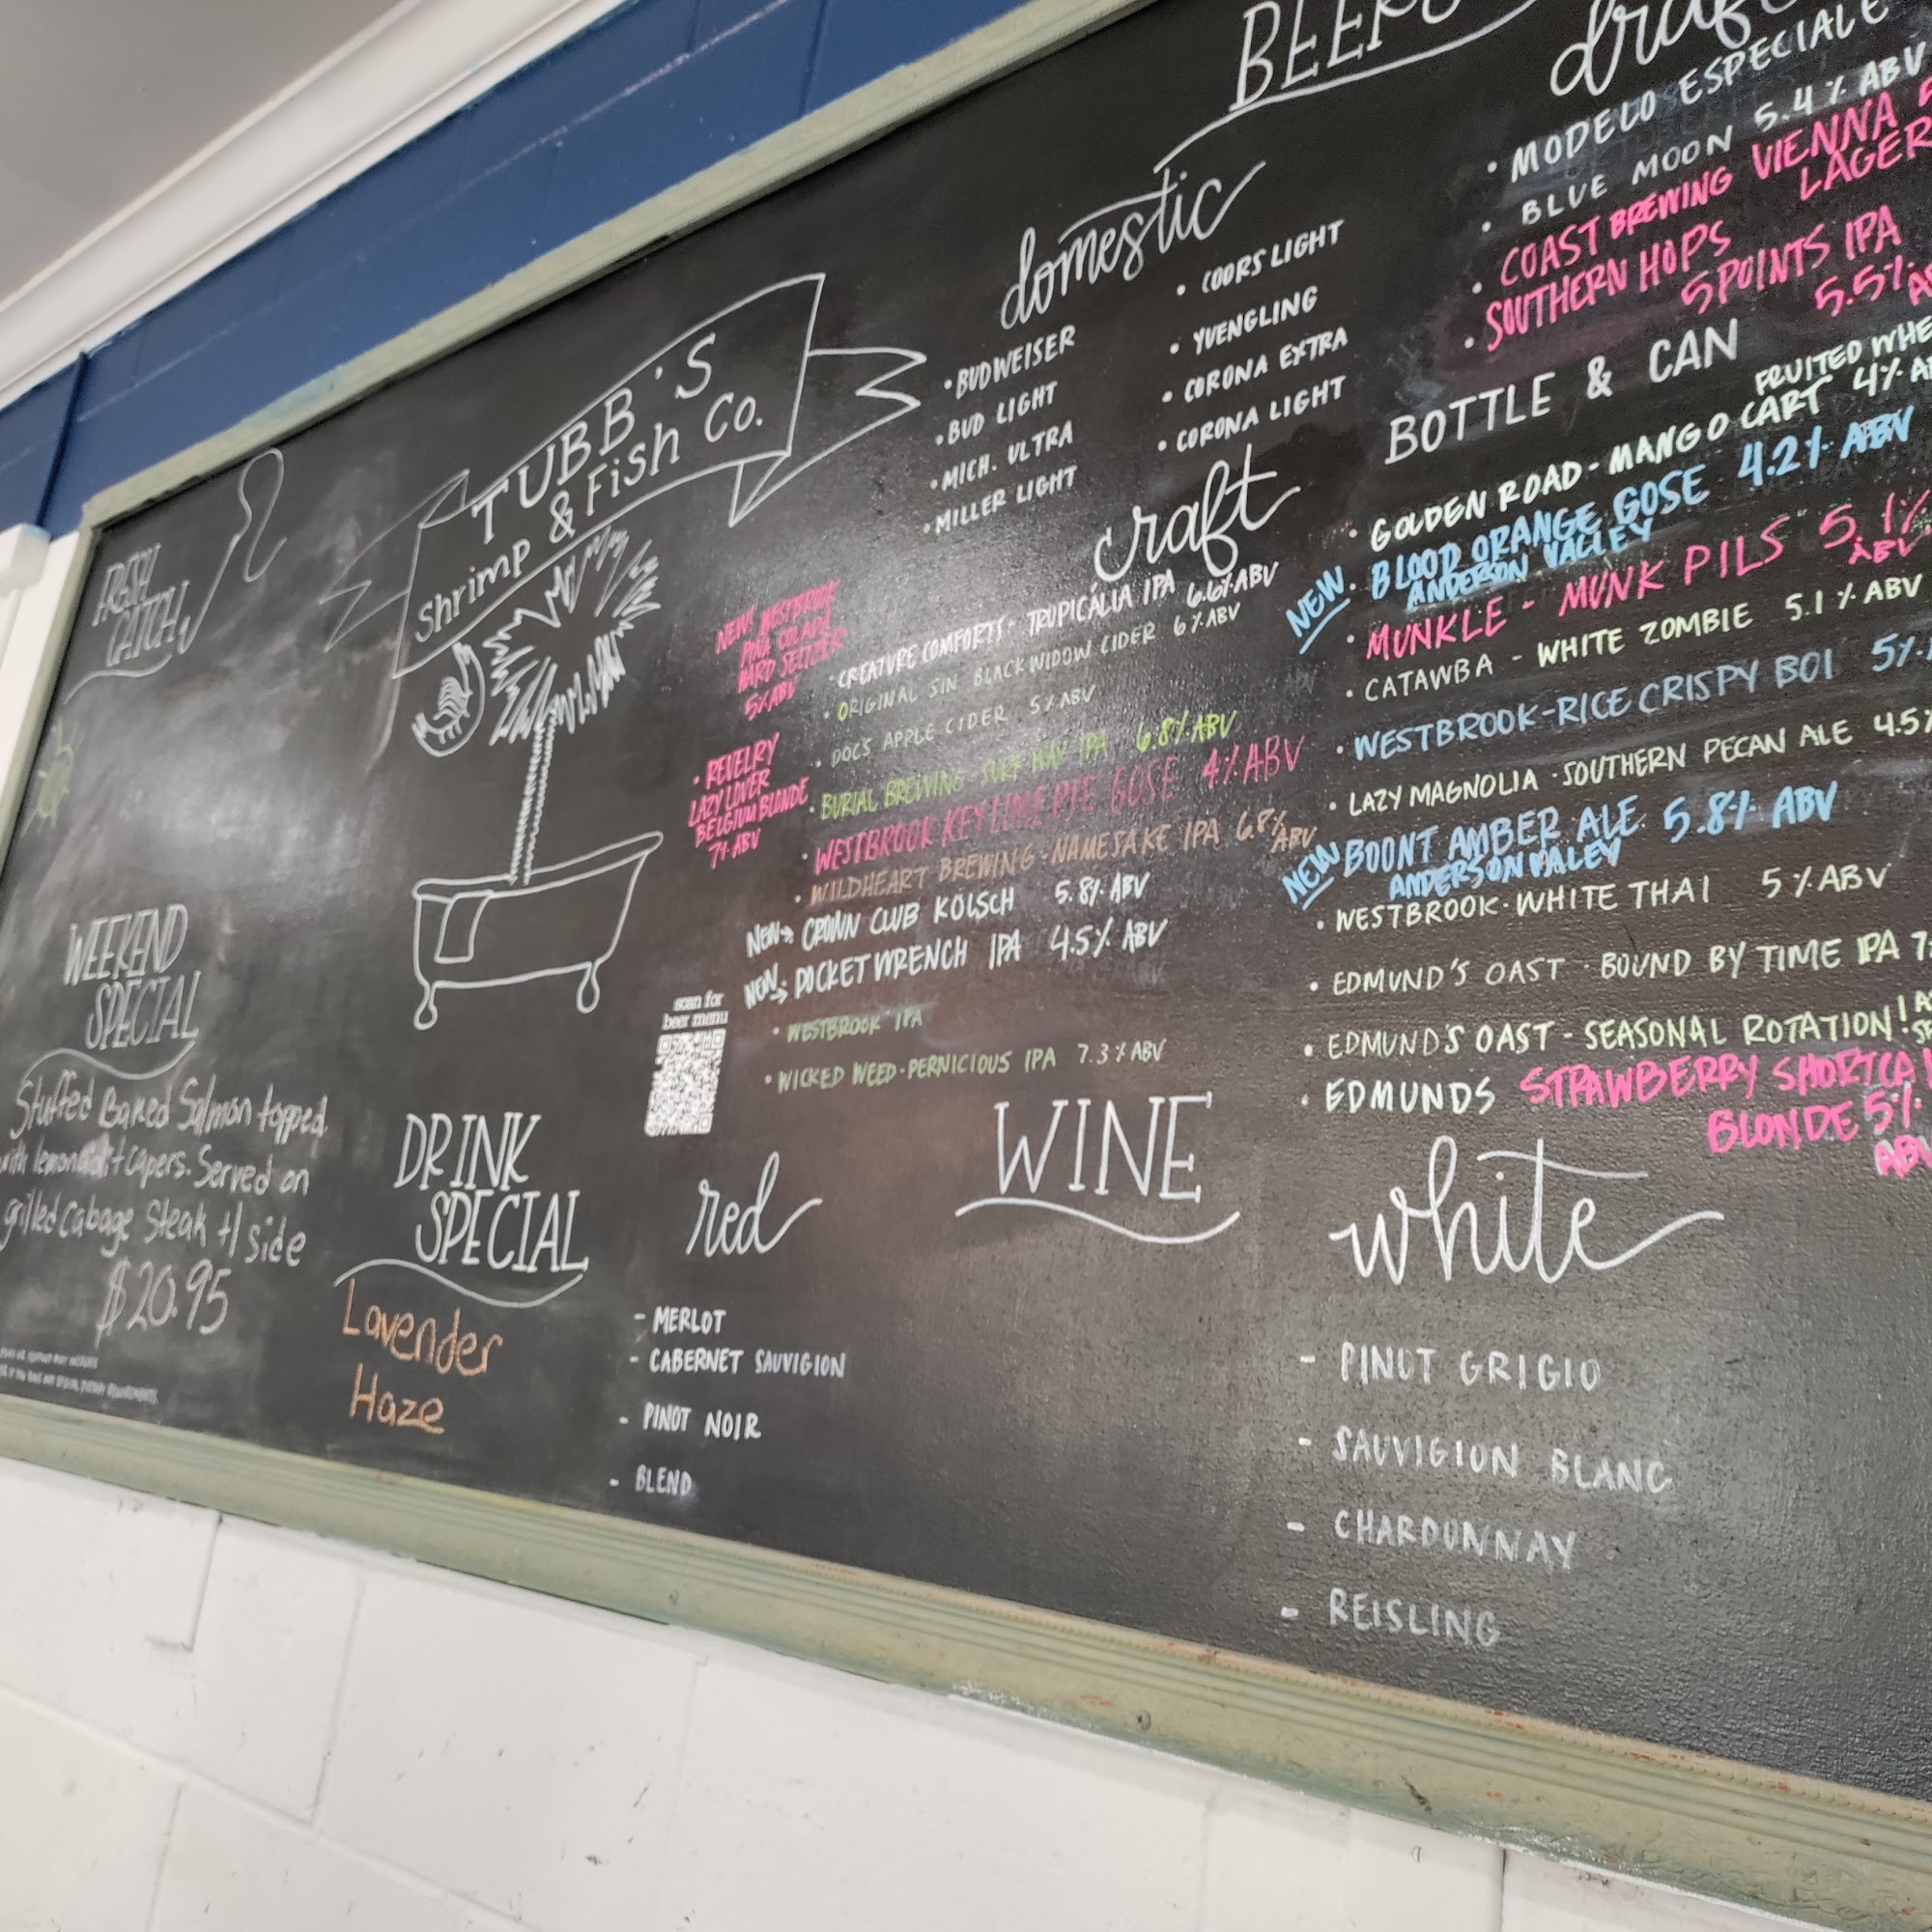 FRESH
CATCH
WEEKEND
SPECIAL
Stuffed Baked Salmon topped
with lemon capers. Served on
grilled Cabage Steak +1 side
$20.95
TUBB'S
Shrimp & Fish Co.
DRINK
SPECIAL
Lavender
Haze
BEERS
domestic
• BUDWEISER
• BUD LIGHT
• MICH. ULTRA
• MILLER LIGHT
• COORS LIGHT
• YUENGLING
• CORONA EXTRA
• CORONA LIGHT
craft
NEW! WESTBROOK
PINA COLADA
HARD SELTZER
5% ABV
• REVELRY
LAZY LOVER
BELGIUM BLONDE
7% ABV
• CREATURE COMFORTS - TROPICALIA IPA 6.6% ABV
• ORIGINAL SIN BLACK WIDOW CIDER 6% ABV
• DOC'S APPLE CIDER 5% ABV
• BURIAL BREWING - SURF WAX IPA 6.8% ABV
• WESTBROOK KEY LIME PIE GOSE 4% ABV
• WILDHEART BREWING - NAMESAKE IPA ABV
NEW→ CROWN CLUB KÖLSCH 5.8% ABV
NEW→ POCKET WRENCH IPA 4.5% ABV
• WESTBROOK IPA
• WICKED WEED - PERNICIOUS IPA 7.3% ABV
scan for
beer menu
draft
• MODELO ESPECIALE
• BLUE MOON 5.4% ABV
• COAST BREWING VIENNA
LAGER
• SOUTHERN HOPS
5 POINTS IPA
5.5%
BOTTLE & CAN
FRUITED
• GOLDEN ROAD - MANGO CART 4%
NEW • BLOOD ORANGE GOSE 4.2% ABV
ANDERSON VALLEY
• MUNKLE - MUNK PILS 5.1%
ABV
• CATAWBA - WHITE ZOMBIE 5.1% ABV
• WESTBROOK - RICE CRISPY BOI 5%
• LAZY MAGNOLIA - SOUTHERN PECAN ALE 4.5
NEW BOONT AMBER ALE 5.8% ABV
ANDERSON VALEY
• WESTBROOK - WHITE THAI 5% ABV
• EDMUND'S OAST - BOUND BY TIME IPA 7
• EDMUND'S OAST - SEASONAL ROTATION!
• EDMUNDS STRAWBERRY
BLONDE 5%
WINE
red
- MERLOT
- CABERNET SAUVIGION
- PINOT NOIR
- BLEND
white
- PINOT GRIGIO
- SAUVIGION BLANC
- CHARDONNAY
- REISLING